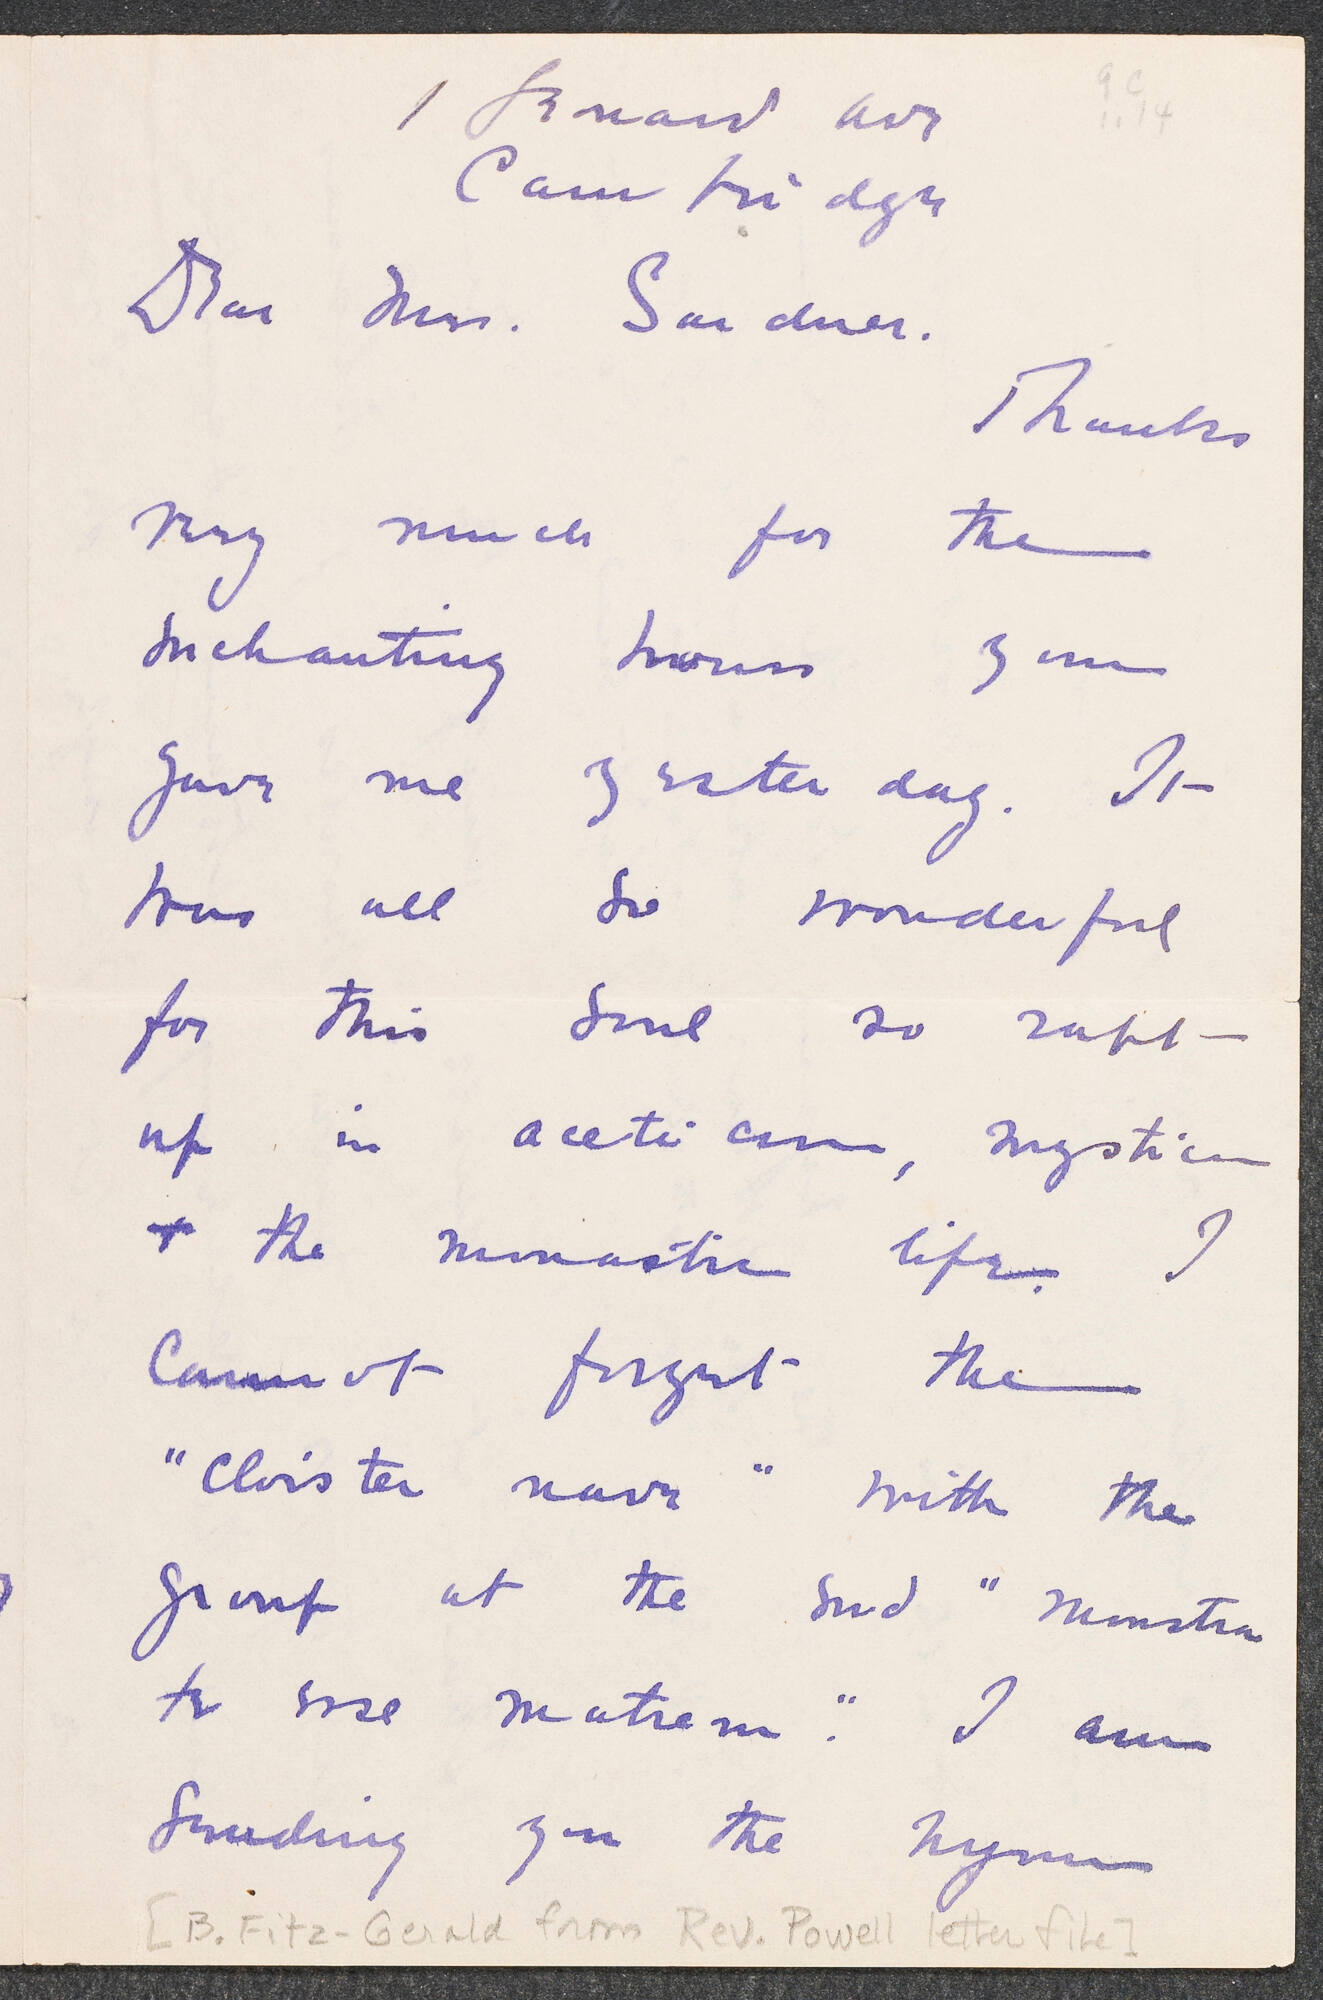 9 C
1.14
1 Gerard ave
Cambridge
Dear Mrs. Gardner.
Thanks
very much for the
enchanting hours you
gave me yesterday. It
was all so wonderful
for this soul so rapt
up in aceticism, mysticism
+ the monastic life. I
cannot forget the
"Cloister nave" with the
group at the end "monstra
te esse matrem". I am
sending you the hymn
[B. Fitz-Gerald from Rev. Powell letter file]